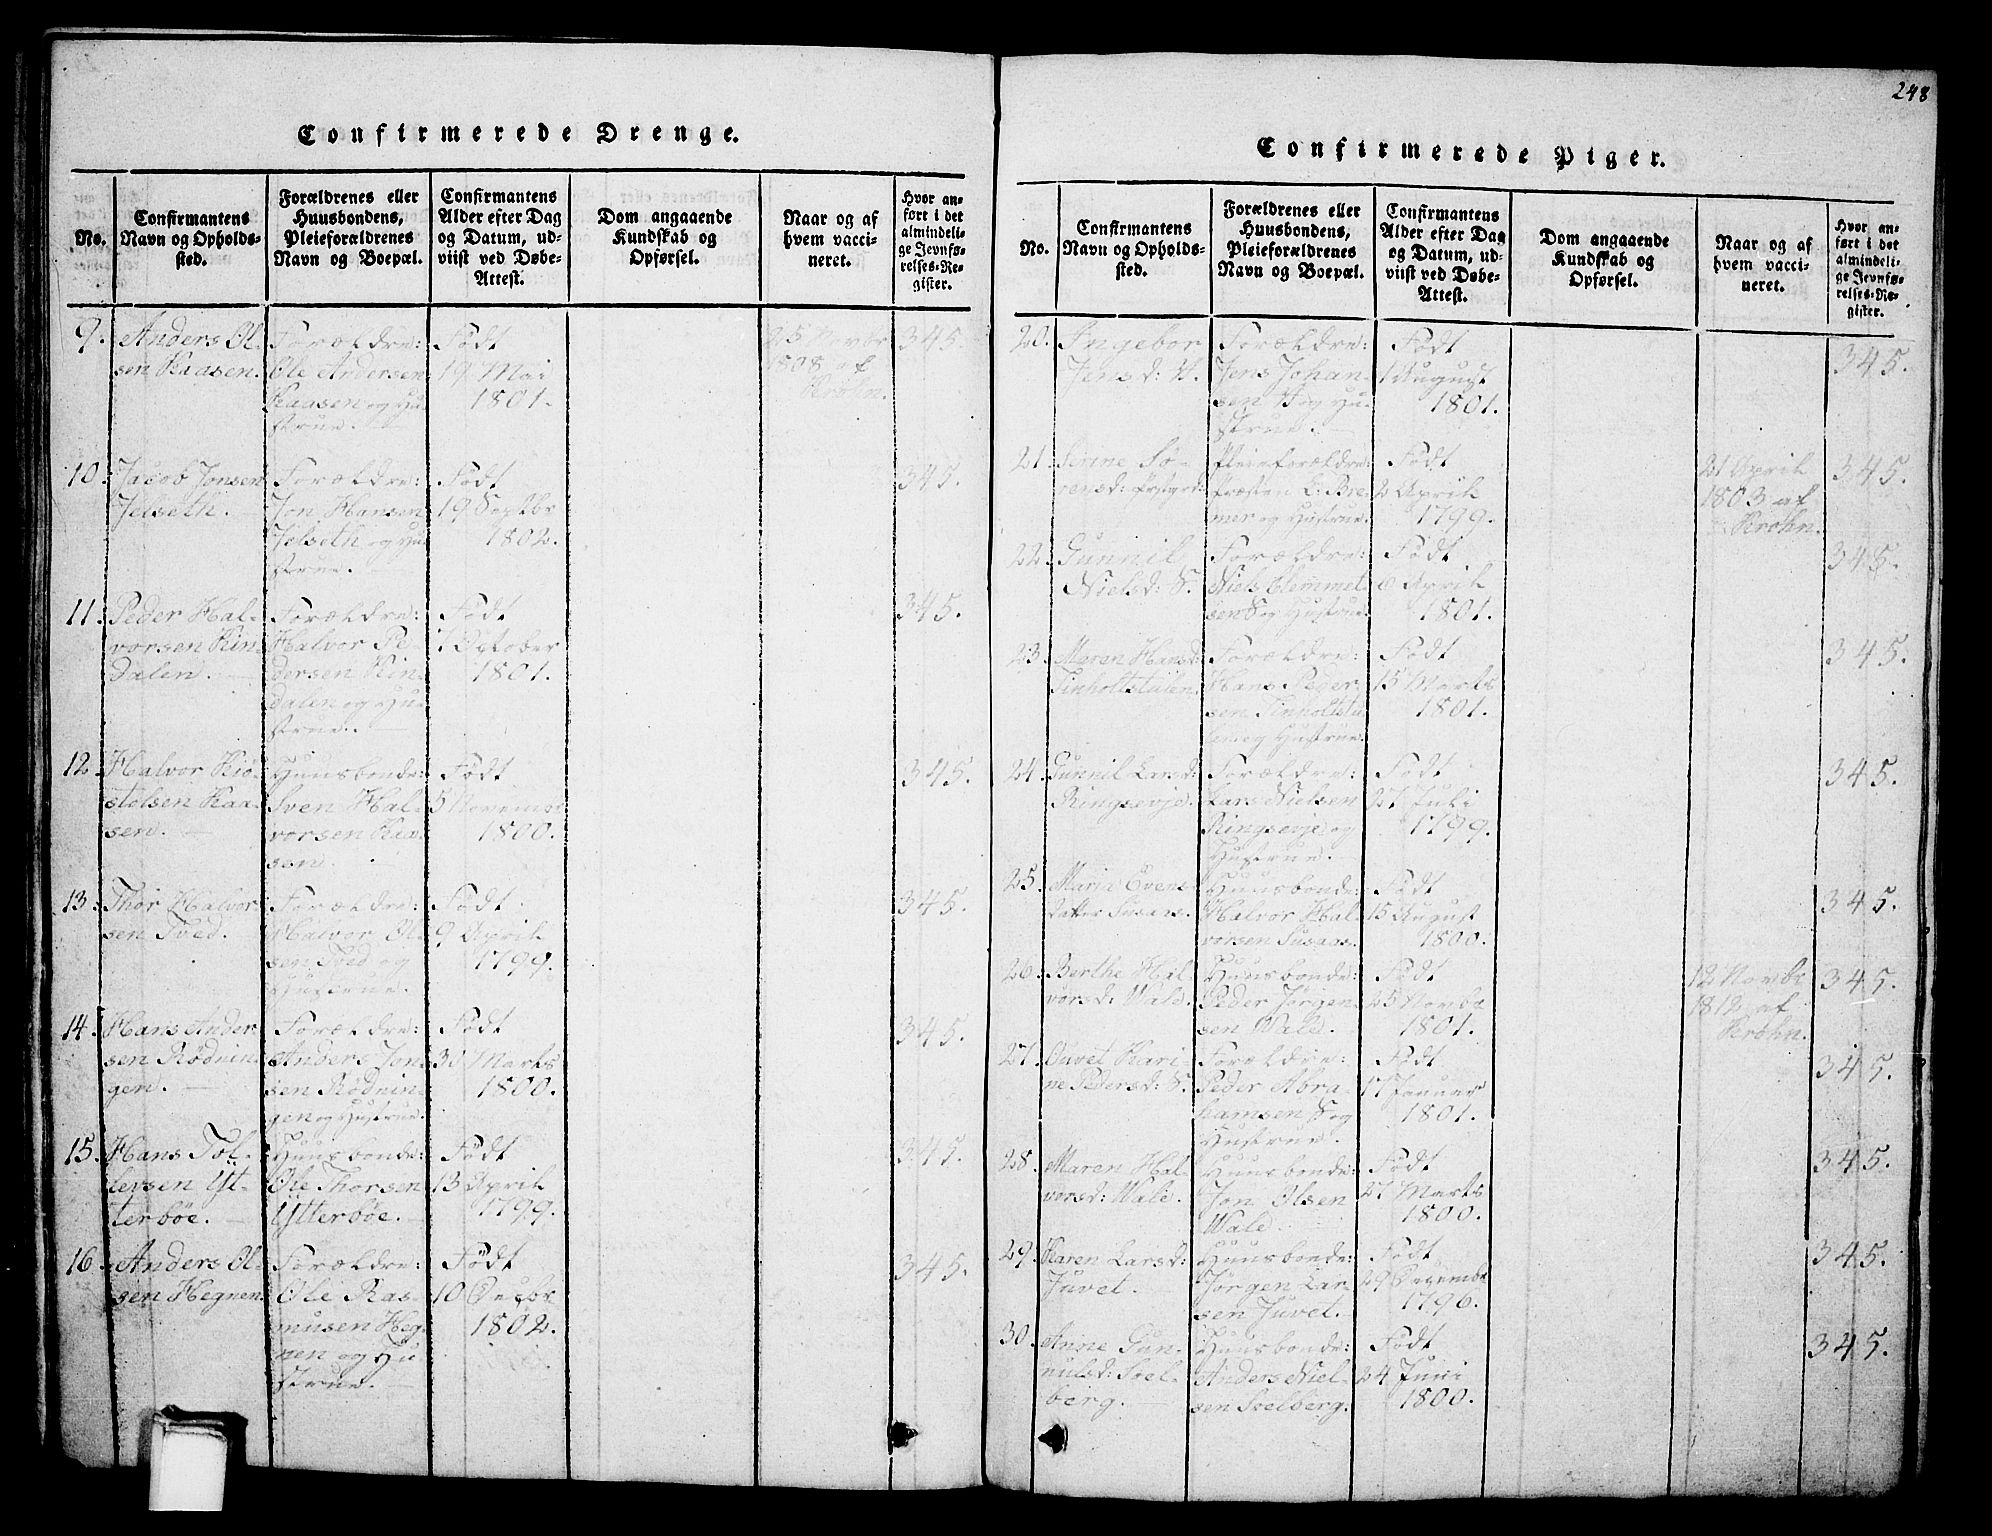 248
Confirmerede Drenge.
No.
Confirmantens
Navn og Opholds-
sted.
Forældrenes eller
Huusbondens,
Pleieforældrenes
Navn og Boepæl.
Confirmantens
Alder efter Dag
og Datum, ud-
viist ved Døbe-
Attest.
Dom angaaende
Kundskab og
Opførsel.
Naar og af
hvem vacci-
neret.
Hvor an-
ført i det
almindeli-
ge Jevnfø-
relses-Re-
gister.
9.
Anders Ol-
sen Kaasen.
Forældre:
Ole Andersen
Kaasen og Hu-
strue.
Født
19 Mai
1801.
1808 af
Krohn.
345.
10.
Jacob Jonsen
Jelseth.
Forældre:
Jon Hansen
Jelseth og Hu-
strue.
Født
19 Septbr
1802.
345.
11.
Peder Hal-
vorsen Kin-
dalen.
Forældre:
Halvor Pe-
dersen Kin-
dalen og Hu-
strue.
Født
7 October
1801.
345.
12.
Halvor Kiø-
stolsen Kaa-
sen.
Huusbonde:
Sven Hal-
vorsen Kaa-
sen.
Født
5 Novembr
1800.
345.
13.
Thor Halvor-
sen Tved.
Forældre:
Halvor Ol-
sen Tved og
Hustrue.
Født
9 April
1799.
345.
14.
Hans Ander-
sen Rødnin-
gen.
Forældre:
Anders Jon-
sen Rødnin-
gen og Hustrue.
Født
30 Marts
1800.
345.
15.
Hans Tol-
levsen Yt-
terbøe.
Huusbonde:
Ole Thorsen
Ytterbøe.
Født
13 April
1799.
345.
16.
Anders Ol-
sen Hegnen.
Forældre:
Ole Ras-
musen Heg-
nen og Hu-
strue.
Født
10 Decbr
1802.
345.
Confirmerede Piger.
No.
Confirmantens
Navn og Opholds-
sted.
Forældrenes eller
Huusbondens,
Pleieforældrenes
Navn og Boepæl.
Confirmantens
Alder efter Dag
og Datum, ud-
viist ved Døbe-
Attest.
Dom angaaende
Kundskab og
Opførsel.
Naar og af
hvem vacci-
neret.
Hvor an-
ført i det
almindeli-
ge Jevnfø-
relses-Re-
gister.
20.
Ingebor
Jensd: H.
Forældre:
Jens Johan-
sen H og Hu-
strue.
Født
1 August
1801.
345.
21.
Sø-
rensd:
Pleieforældre:
Præsten C: Bre-
mer og Hustrue.
Født
2 April
1799.
21 April
1803 af
Krohn.
345.
22.
Gunnil
Nielsd: S.
Forældre:
Niels Clemmet-
sen S og Hustrue.
Født
8 April
1801.
345.
23.
Maren Hansd:
Tinholtstulen.
Forældre:
Hans Peder-
sen Tinholtstu-
len og Hustrue.
Født
15 Marts
1801.
345.
24.
Gunnil Larsd:
Ringsevje.
Forældre:
Lars Nielsen
Ringsevje og
Hustrue.
Født
27 Juli
1799.
345.
25.
Maria Evens-
datter Susaas.
Huusbonde:
Halvor Hal-
vorsen Susaas.
Født
15 August
1800.
345.
26.
Berthe Hal-
vorsd: Wale.
Huusbonde:
Peder Jørgen-
sen Wale.
Født
25 Novbr
1801.
12 Novbr
1812 af
Krohn.
345.
27.
Kari-
ne Pedersd: S.
Forældre:
Peder Abra-
hamsen S og
Hustrue.
Født
17 Januar
1801.
345.
28.
Maren Hal-
vorsd: Wale.
Huusbonde:
Jon Olsen
Wale.
Født
27 Marts
1800.
345.
29.
Karen Larsd:
Juvet.
Huusbonde:
Jørgen Lar-
sen Juvet.
Født
29 Decembr
1796.
345.
30.
Anne Gun-
nulsd: Soel-
berg.
Huusbonde:
Anders Niel-
sen Soelberg.
Født
24 Juni
1800.
345.